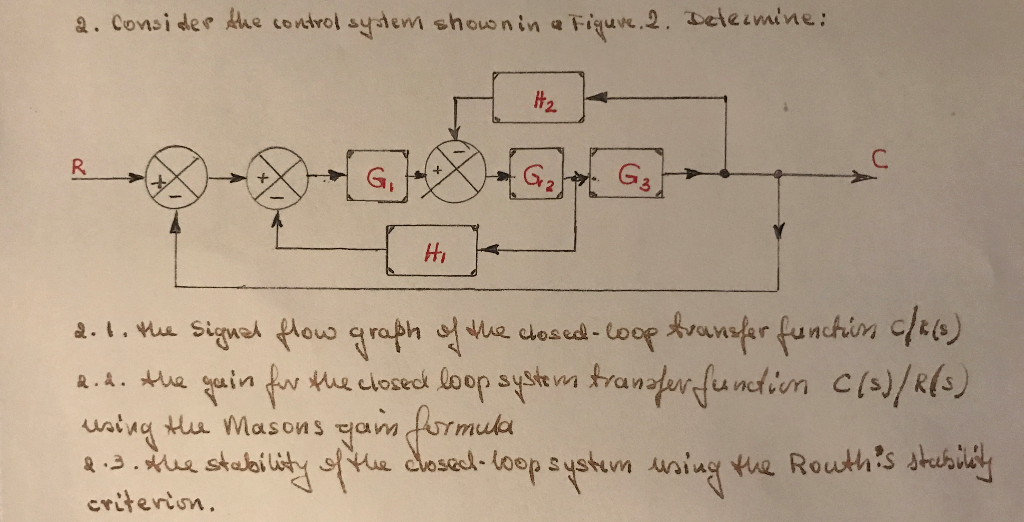 2. Consider the control system shown in a Figure.2. Determine:
H2
R
+
−
+
−
G1
+
−
G2
G3
C
H1
2.1. the signal flow graph of the closed-loop transfer function C/R(s)
2.2. the gain for the closed loop system transfer function C(s)/R(s)
using the Masons gain formula
2.3. the stability of the closed-loop system using the Routh's stability
criterion.